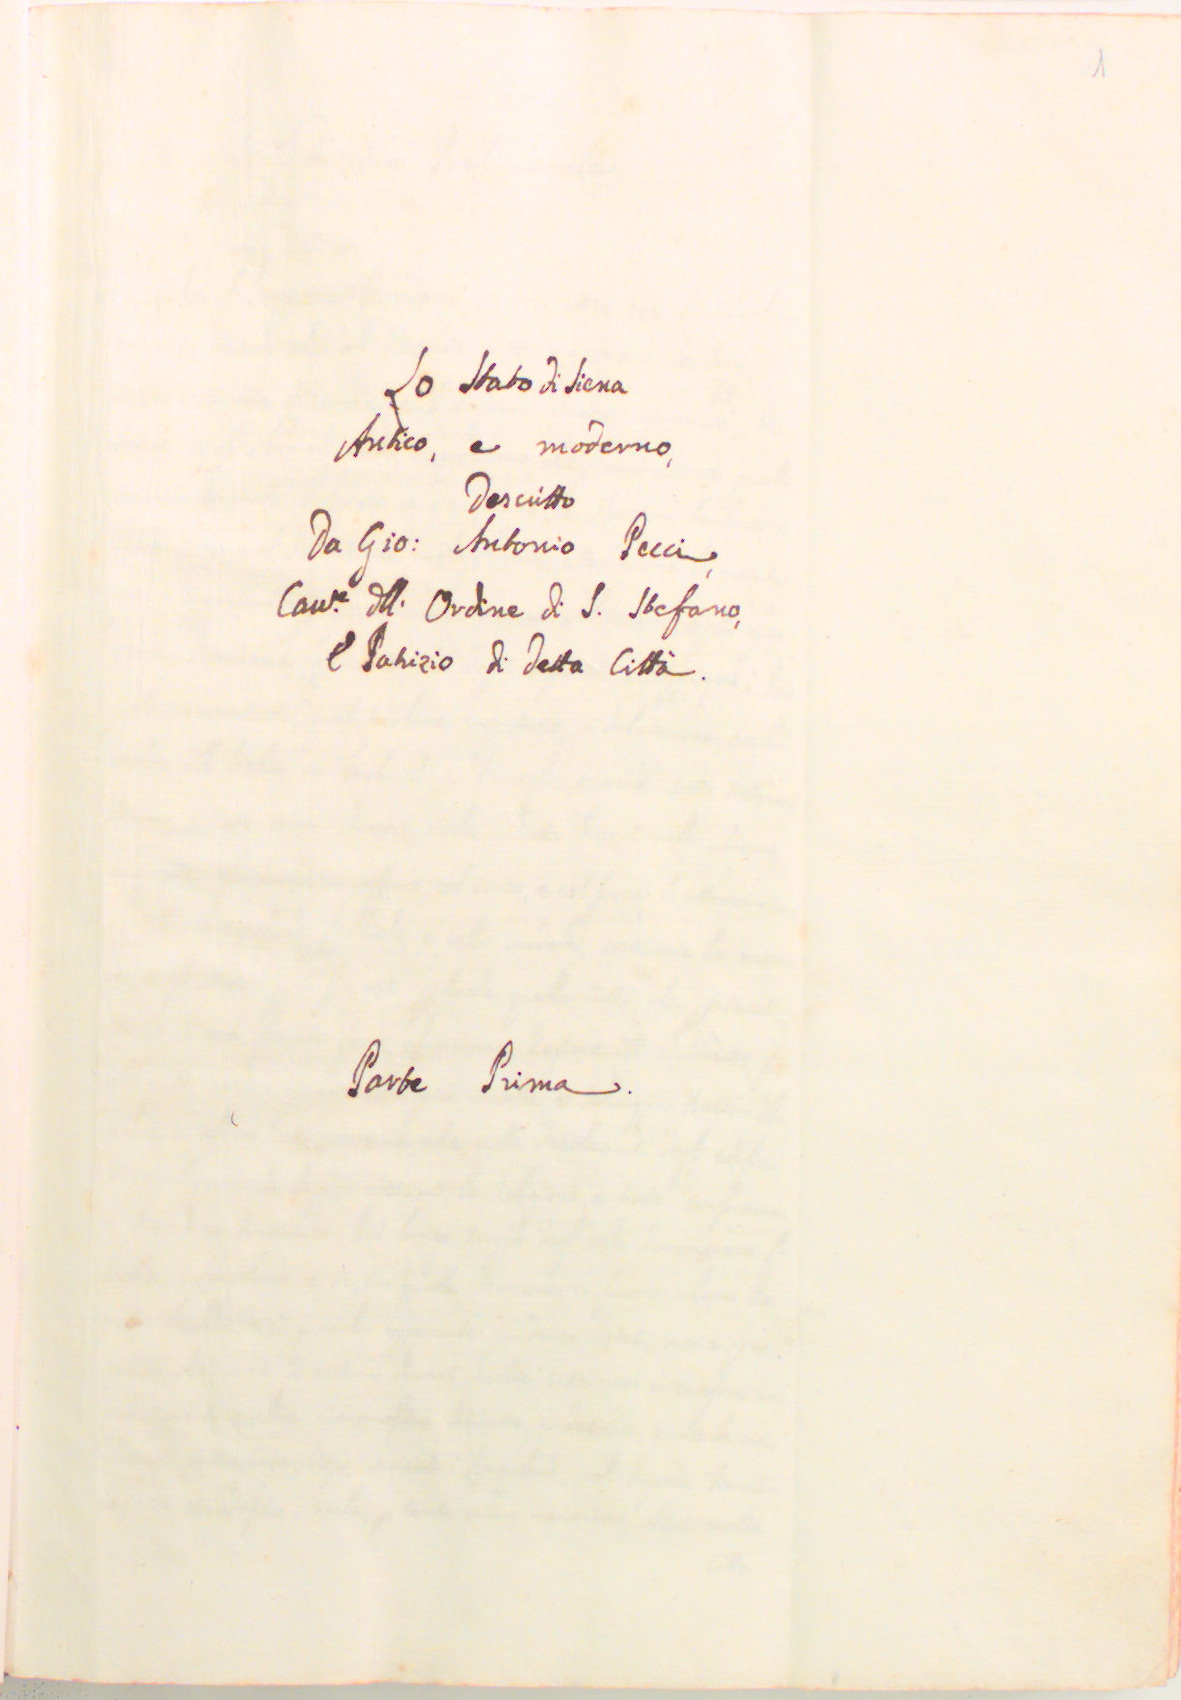 1
Lo Stato di Siena
Antico, e moderno,
Descritto
Da Gio: Antonio Pecci,
Cav.re dell' Ordine di S. Stefano,
e Patrizio di detta Città.
Parte Prima.